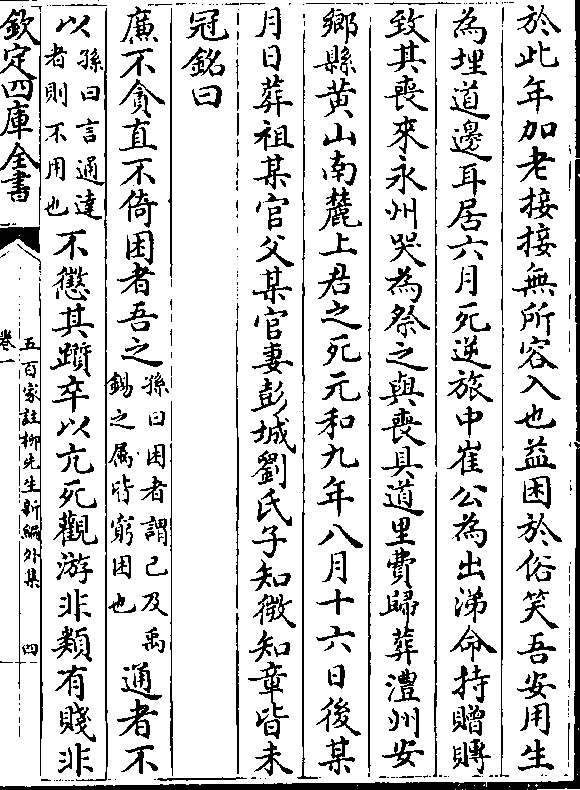 於此年加老接接無所容入也益困於俗笑吾安用生
為埋道邊耳居六月死逆旅中崔公為出涕命持贈賻
致其喪來永州哭為祭之與喪具道里費歸葬澧州安
鄉縣黄山南麓上君之死元和九年八月十六日後某
月日葬祖某官父某官妻彭城劉氏子知微知章皆未
冠銘曰
廉不貪直不倚困者吾之孫曰困者謂己及禹錫之属皆窮困也通者不
以孫曰言通達者則不用也不懲其躓卒以亢死觀游非類有賤非
欽定四庫全書
卷一
五百家註柳先生新編外集
四